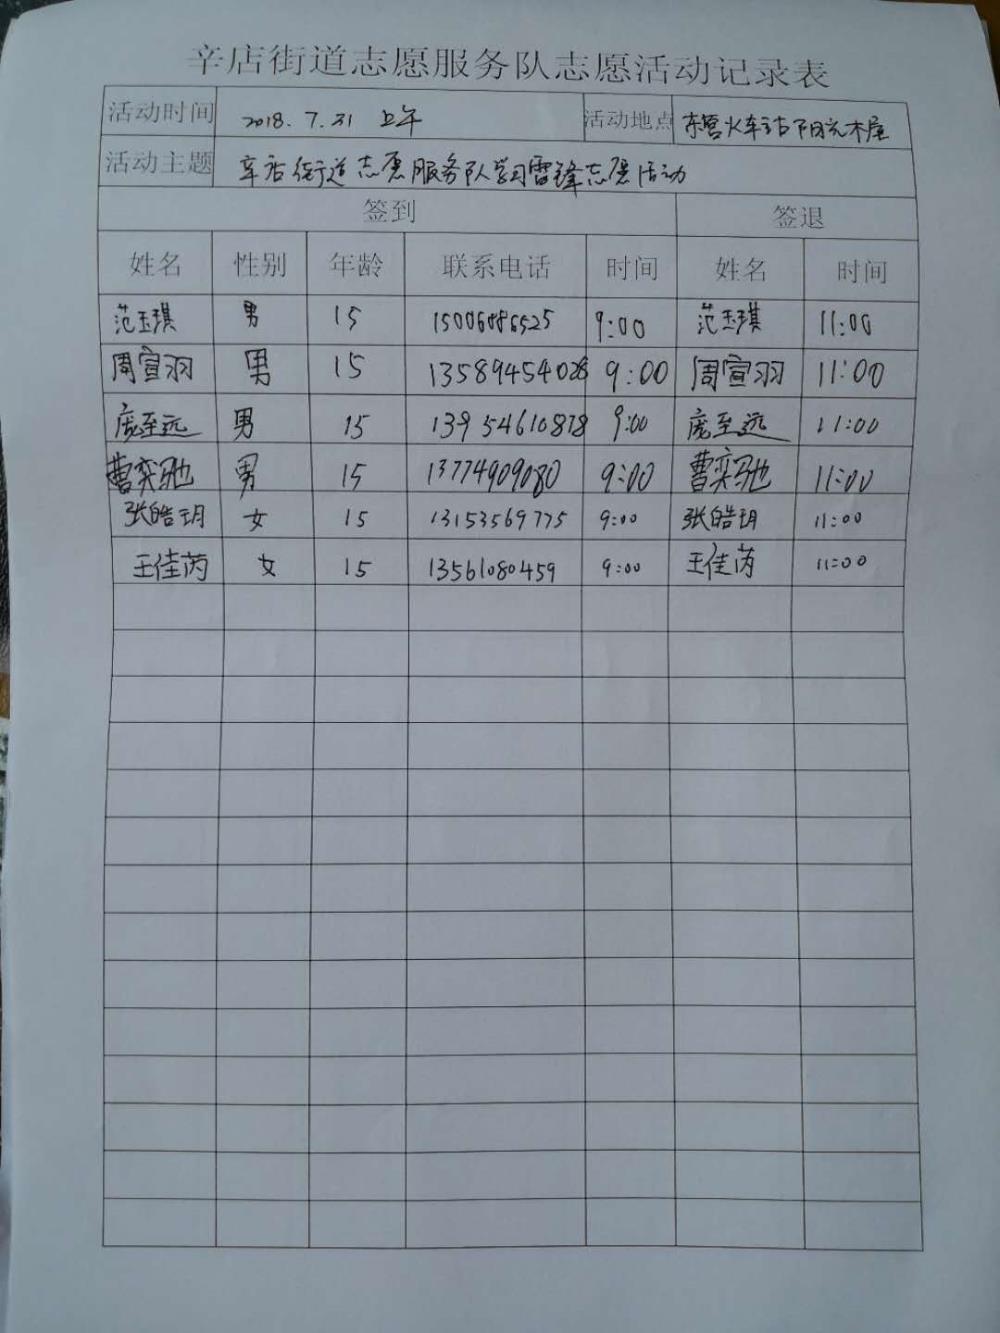 辛店街道志愿服务队志愿活动记录表
活动时间 2018.7.31 上午 活动地点 东营火车站阳光木屋
活动主题 辛店街道志愿服务队学习雷锋志愿活动
签到 签退
姓名 性别 年龄 联系电话 时间 姓名 时间
范玉琪 男 15 15006086525 9:00 范玉琪 11:00
周宣羽 男 15 13589454028 9:00 周宣羽 11:00
庞至远 男 15 13954610878 9:00 庞至远 11:00
曹奕驰 男 15 13774909080 9:00 曹奕驰 11:00
张皓玥 女 15 13153569775 9:00 张皓玥 11:00
王佳芮 女 15 13561080459 9:00 王佳芮 11:00